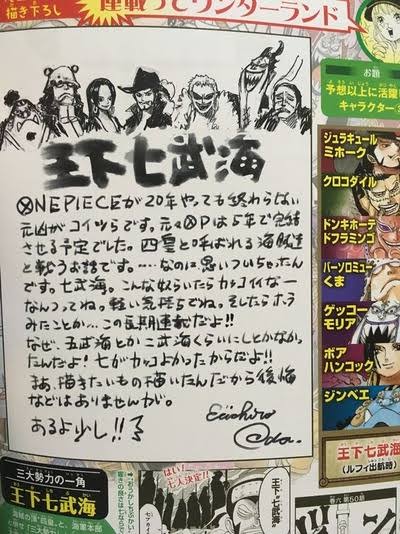 描き下ろし
連載ってワンダーランド
お題
予想以上に活躍
キャラクター
王下七武海
ⓍNE PIECEが20年やっても終わらない
元凶がコイツらです。元々ⓍPは5年で完結
させる予定でした。四皇と呼ばれる海賊達
と戦うお話です。……なのに思いついちゃったん
です。七武海。こんな奴らいたらカッコイイなー
なんつってね。軽い気持ちでね。そしたらホラ
みたことか…この長期連載だよ!!
なぜ、五武海とか二武海くらいにしとかなかっ
たんだよ!七がカッコよかったからだよ!!
まあ、描きたいもの描いたんだから後悔
などはありませんが。
あるよ少し!!
Eiichiro
Oda.
ジュラキュール
ミホーク
クロコダイル
ドンキホーテ
ドフラミンゴ
バーソロミュー
くま
ゲッコー
モリア
ボア
ハンコック
ジンベエ
王下七武海
(ルフィ出航時)
三大勢力の一角
王下七武海
はい!
七人決定!!
王下七武海
巻六 第50話